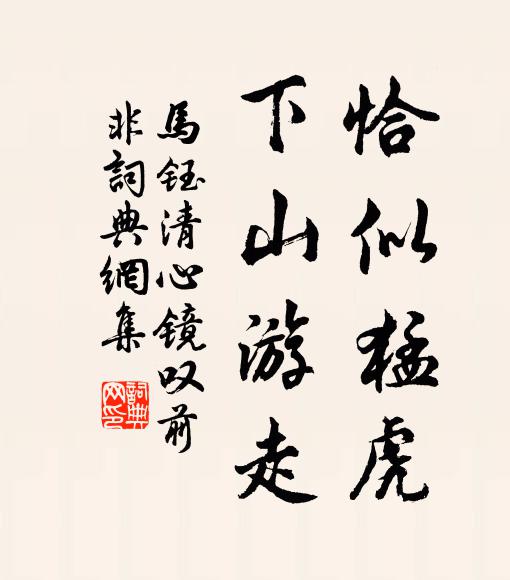 恰似猛虎
下山游走
馬鈺清心镜叹前
非詞典網集
詞典
网印